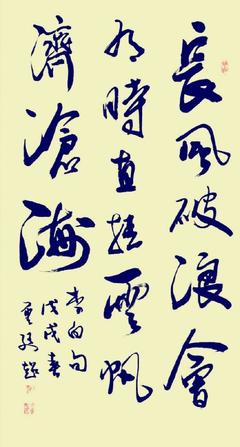 長風破浪會
有時直挂雲帆
濟滄海
李白句
戊戌春